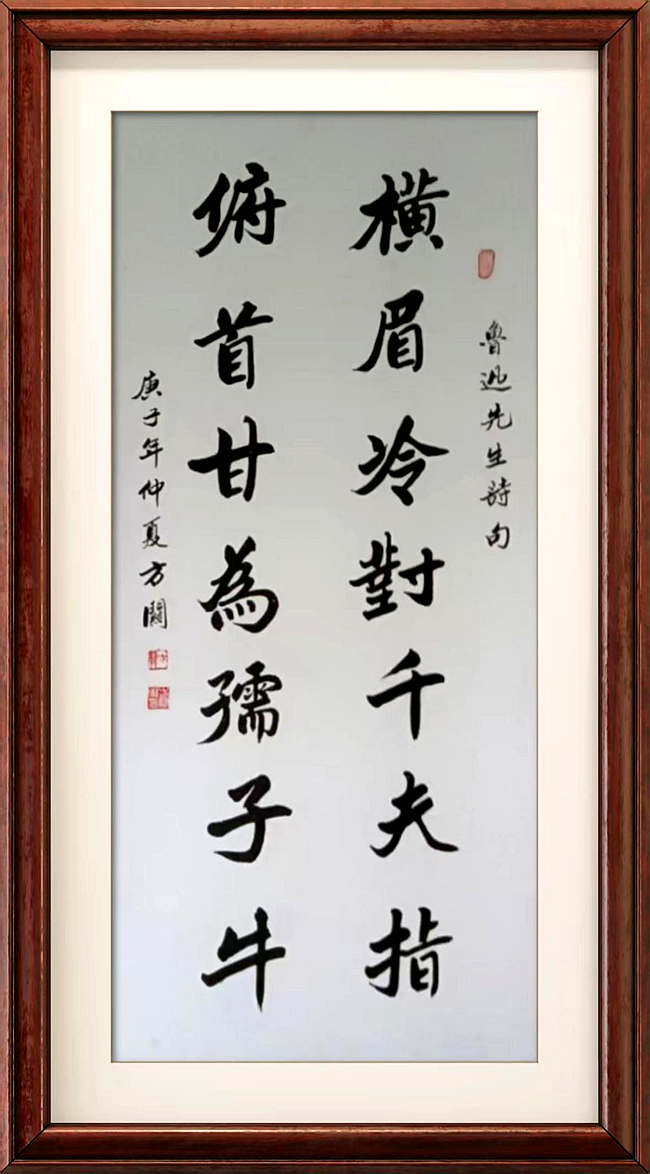 魯迅先生詩句
橫眉冷對千夫指
俯首甘為孺子牛
庚子年仲夏方闕